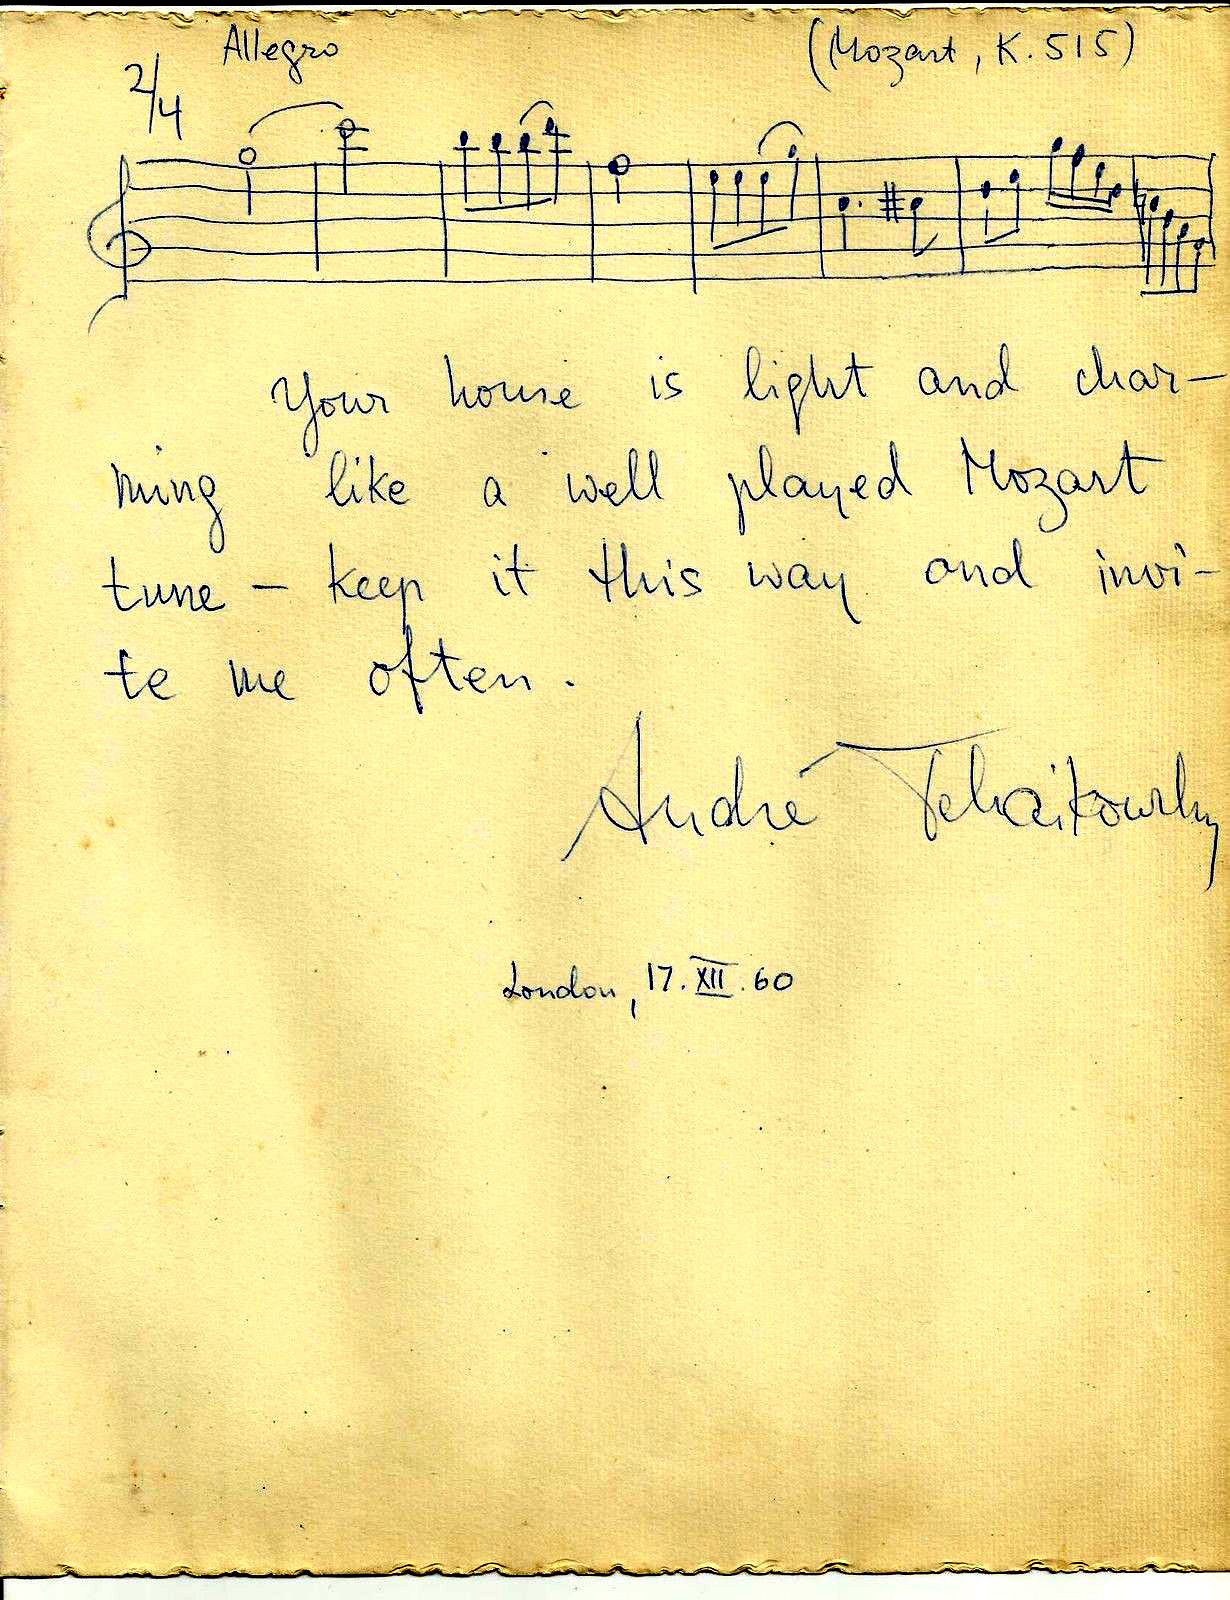 Allegro (Mozart, K. 515)
2/4
Your house is light and char-
ming like a well played Mozart
tune - keep it this way and invi-
te me often.
André Tchaikowsky
London, 17. XII. 60